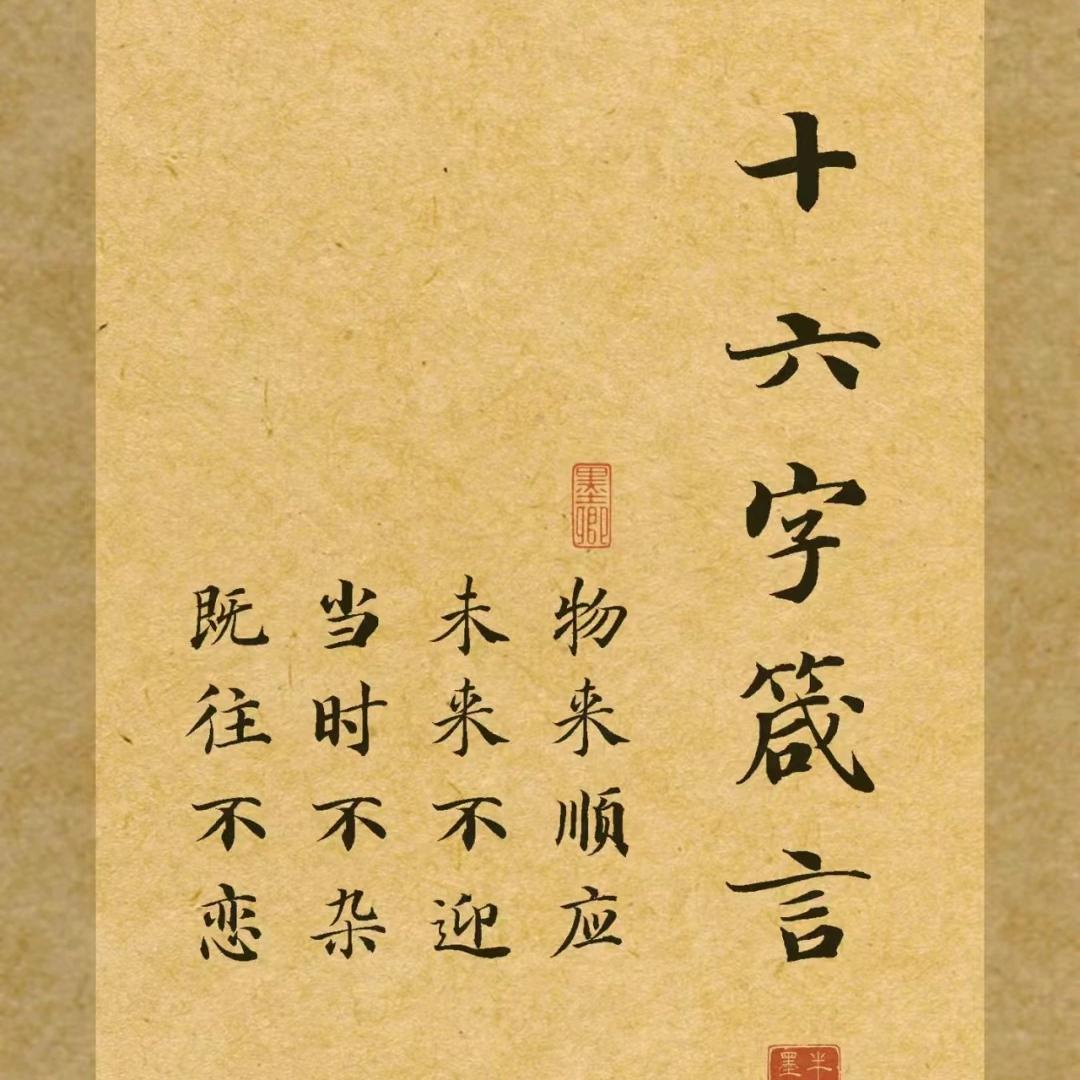 十六字箴言
墨卿
物来顺应
未来不迎
当时不杂
既往不恋
半墨